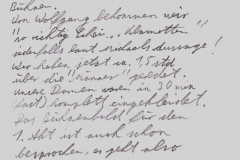 Bühne.
Von Wolfgang bekommen wir
"so richtig Echi... Klamotten"
jedenfalls laut Michaels Aussage!
Wir haben jetzt ca. 1,5 Std
über die "Männer" geredet.
Unsere Damen waren in 30 min
(fast) komplett eingekleidet.
Das Bühnenbild für den
1. Akt ist auch schon
besprochen, es geht also